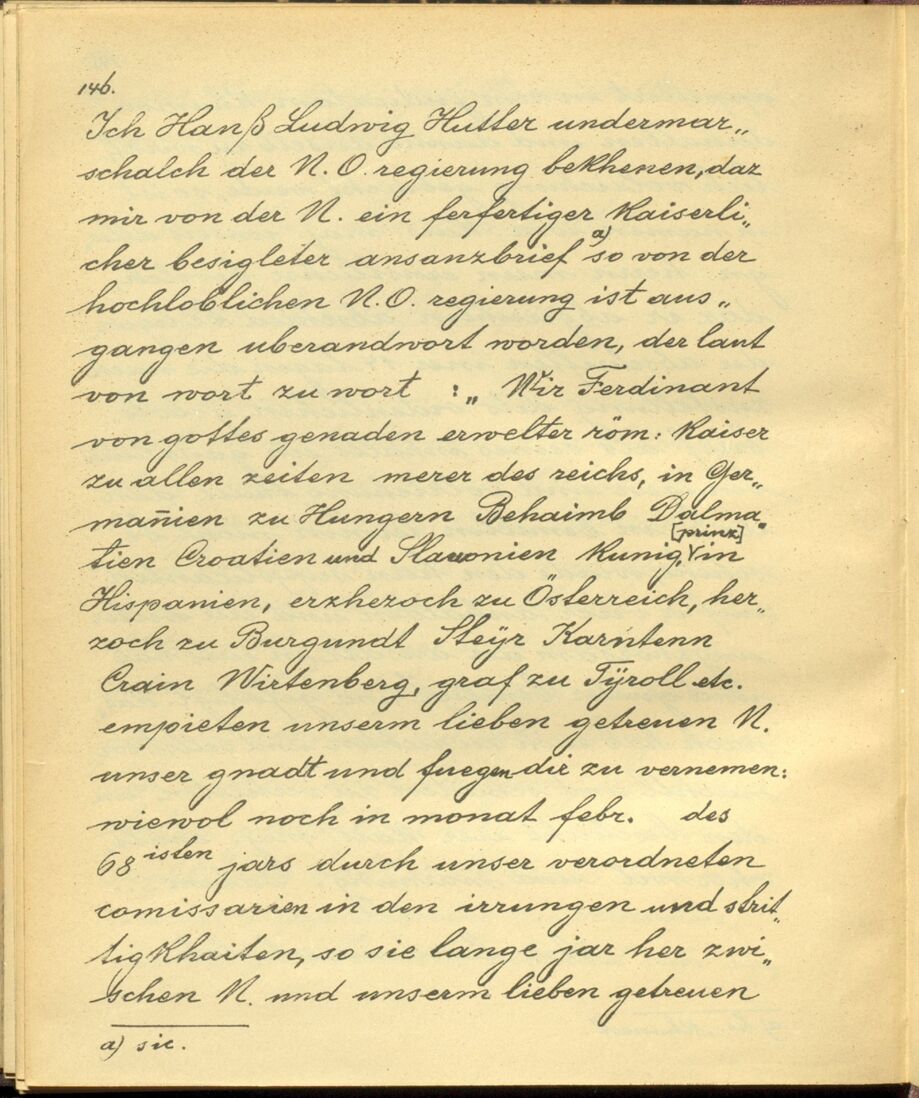 146.
Ich Hanß Ludwig Hutter undermar„
schalch der N. O. regierung bekhenen, daz
mir von der N. ein ferfertiger Kaiserli„
cher besigleter ansanzbrief a) so von der
hochloblichen N. O. regierung ist aus„
gangen uberandwort worden, der laut
von wort zu wort :„ Wir Ferdinant
von gottes genaden erwelter röm: Kaiser
zu allen zeiten merer des reichs, in Ger„
mañien zu Hungern Behaimb Dalma„
tien Croatien und Slavonien Kunig, [prinz] in
Hispanien, erzherzoch zu Österreich, her„
zoch zu Burgundt Steÿr Karntenn
Crain Wirtenberg, graf zu Tÿroll etc.
empieten unserm lieben getreuen N.
unser gnadt und fuegen dir zu vernemen:
wiewol noch in monat febr. des
68 isten jars durch unser verordneten
comissarien in den irrungen und strit„
tigkhaiten, so sie lange jar her zwi„
schen N. und unserm lieben getreuen
a) sic.